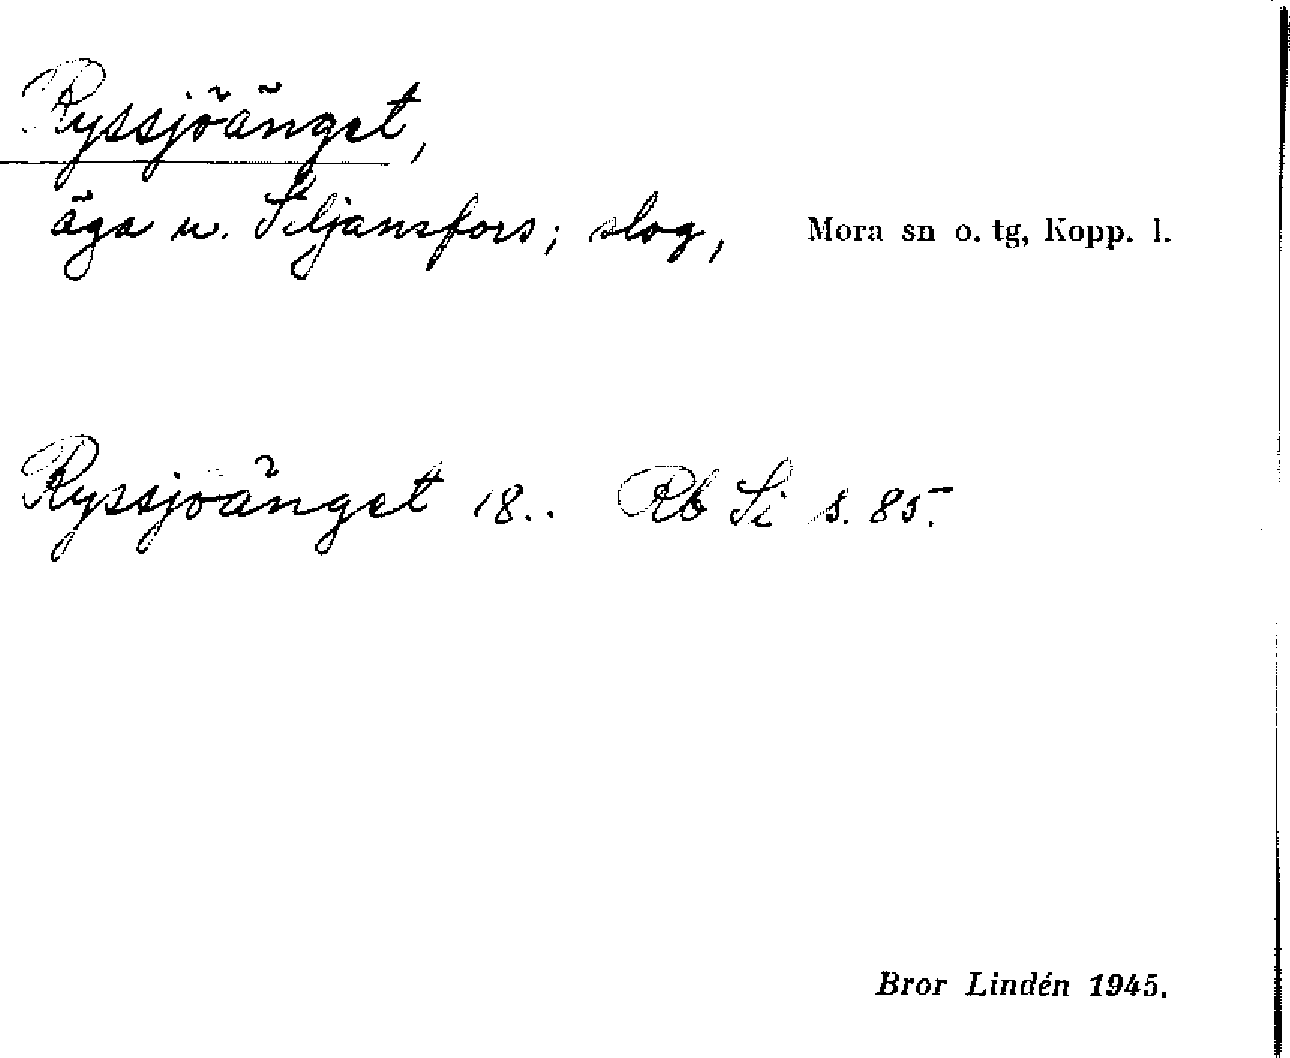 Ryssjöänget,
äga u. Siljansfors; slog, Mora sn o. tg, Kopp. l.
Ryssjöänget 18.. Rb Si s. 85.
Bror Lindén 1945.